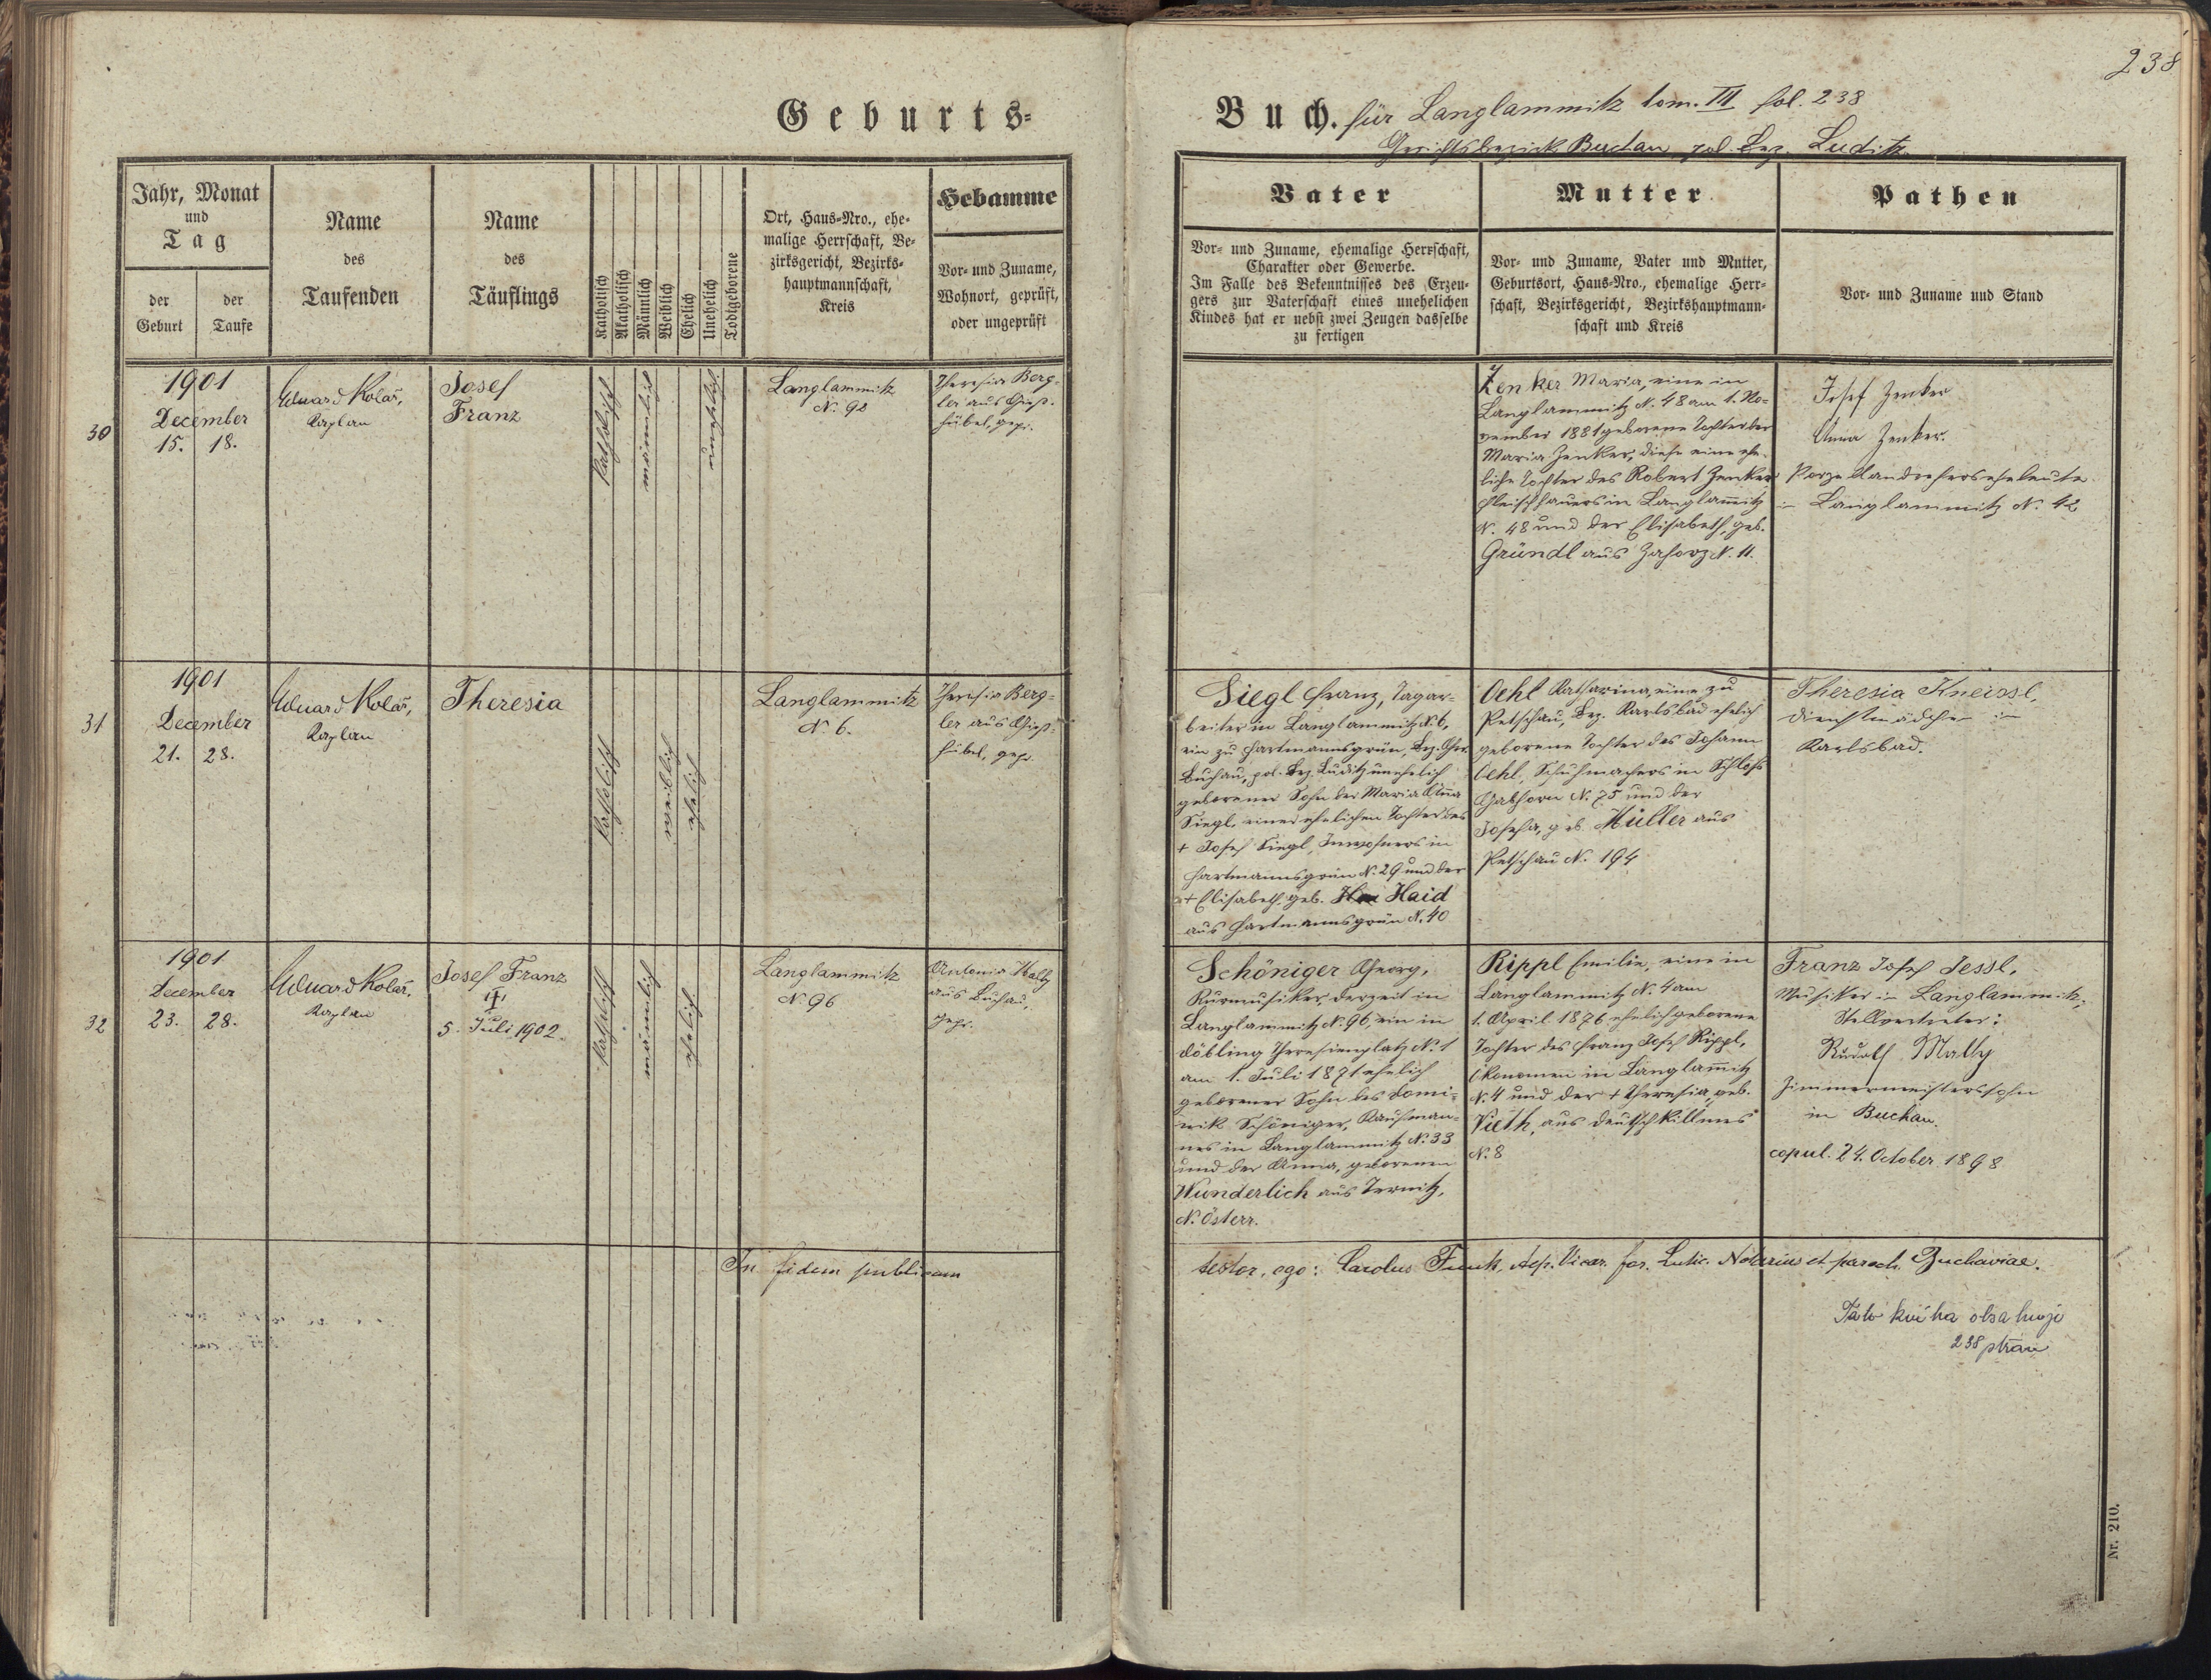 238
Geburts-
Buch. für Langlammitz tom. III fol. 238
Gerichtsbezirk Buchau, pol. Bez. Luditz.
Jahr, Monat
und
Tag
der
Geburt
der
Taufe
Name
des
Taufenden
Name
des
Täuflings
Katholisch
Akatholisch
Männlich
Weiblich
Ehelich
Unehelich
Todtgeborene
Ort, Haus-Nro., ehe-
malige Herrschaft, Be-
zirksgericht, Bezirks-
hauptmannschaft,
Kreis
Hebamme
Vor- und Zuname,
Wohnort, geprüft,
oder ungeprüft
Vater
Vor- und Zuname, ehemalige Herrschaft,
Charakter oder Gewerbe.
Im Falle des Bekenntnisses des Erzeu-
gers zur Vaterschaft eines unehelichen
Kindes hat er nebst zwei Zeugen dasselbe
zu fertigen
Mutter
Vor- und Zuname, Vater und Mutter,
Geburtsort, Haus-Nro., ehemalige Herr-
schaft, Bezirksgericht, Bezirkshauptmann-
schaft und Kreis
Pathen
Vor- und Zuname und Stand
30
1901
December
15. 18.
Eduard Kolář,
Kaplan
Josef
Franz
katholisch
männlich
unehelich
Langlammitz
N. 92
Theresia Berg-
ler aus Gieß-
hübel, gepr.
Zenker Maria, eine in
Langlammitz N. 48 am 1. No-
vember 1881 geborene Tochter der
Maria Zenker, diese eine ehe-
liche Tochter des Robert Zenker
Fleischhauers in Langlam̄itz
N. 48 und der Elisabeth, geb.
Gründl aus Zahorz N. 11.
Josef Zenker
Anna Zenker.
Porzellandreherseheleute
in Langlammitz N. 42
31
1901
December
21. 28.
Eduard Kolář,
Kaplan
Theresia
katholisch
weiblich
ehelich
Langlammitz
N. 6.
Theresia Berg-
ler aus Gieß-
hübel, gepr.
Siegl Franz, Tagar-
beiter in Langlammitz N. 6,
ein zu Hartmannsgrün, Bez. Ger.
Buchau, pol. Bez. Luditz unehelich
geborener Sohn der Maria Anna
Siegl, einer ehelichen Tochter des
+ Josef Siegl, Inwohners in
Hartmannsgrün N. 29 und der
+ Elisabeth, geb. Haid
aus Hartmannsgrün N. 40
Oehl Katharina, eine zu
Petschau, Bez. Karlsbad ehelich
geborene Tochter des Johann
Oehl, Schuhmachers in Schloss
N. 75 und der
Josefa, geb. Müller aus
Petschau N. 194
Theresia Kneissl,
Dienstmädchen in
Karlsbad.
32
1901
December
23. 28.
Eduard Kolář,
Kaplan
Josef Franz
†
5. Juli 1902.
katholisch
männlich
ehelich
Langlammitz
N. 96
Antonia
aus Buchau,
gepr.
Schöniger Georg,
Kurmusiker, derzeit in
Langlammitz N. 96, ein in
Döbling Theresienplatz N. 1
am 1. Juli 1871 ehelich
geborener Sohn des Domi-
nik Schöniger, Kaufman-
nes in Langlammitz N. 33
und der Anna, geborenen
Wunderlich aus Ternitz,
N. Österr.
Rippl Emilie, eine in
Langlammitz N. 4 am
1. April 1876 ehelich geborene
Tochter des Franz Josef Rippl,
Ökonomen in Langlam̄itz
N. 4 und der + Theresia, geb.
Vieth, aus Deutsch Killmes
N. 8
Franz Josef Jessl,
Musiker in Langlammitz,
Stellvertreter:
Rudolf Mally
Zimmermeisterssohn
in Buchau.
copul. 24. October 1898
In fidem publicam
testor, ego: Carolus Funk, Aep. Vicar. for. Lutic. Notarius et paroch. Buchaviae.
Tato kniha obsahuje
238 stran
Nr. 210.